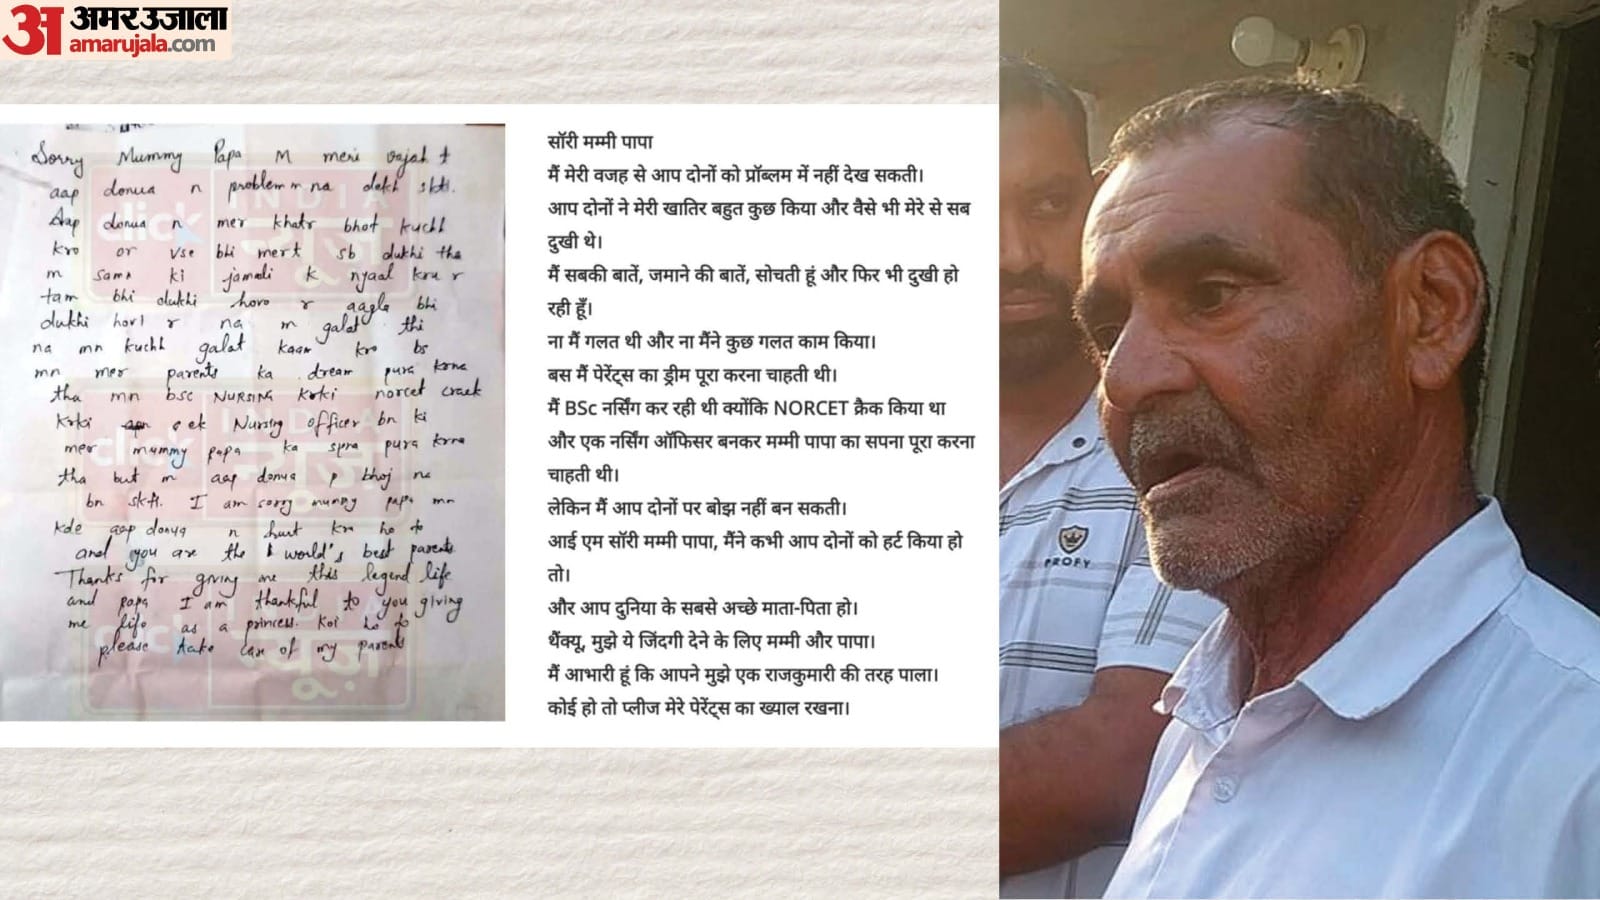 अ अमर उजाला
amarujala.com
Sorry Mummy Papa M meri vajah t
aap donua n problem m na dekh skti.
Aap donua n mer khatr bhot kuchh
kro or vse bhi mert sb dukhi tha
m sama ki jamali k nyaal kru r
tam bhi dukhi horo r aagla bhi
dukhi hori r na m galat thi
na mn kuchh galat kaam kro bs
mn mer parents ka dream pura krna
tha mn bsc NURSING krki norcet crack
krki ek Nursing officer bn ki
mer mummy papa ka spna pura krna
tha but m aap donua p bhoj na
bn skti. I am sorry mummy papa mn
kde aap donua n hurt kra ho to
and you are the world's best parents
Thanks for giving me this legend life
and papa I am thankful to you giving
me life as a princess. Koi ho to
please take care of my parents
सॉरी मम्मी पापा
मैं मेरी वजह से आप दोनों को प्रॉब्लम में नहीं देख सकती।
आप दोनों ने मेरी खातिर बहुत कुछ किया और वैसे भी मेरे से सब
दुखी थे।
मैं सबकी बातें, जमाने की बातें, सोचती हूं और फिर भी दुखी हो
रही हूँ।
ना मैं गलत थी और ना मैंने कुछ गलत काम किया।
बस मैं पेरेंट्स का ड्रीम पूरा करना चाहती थी।
मैं BSc नर्सिंग कर रही थी क्योंकि NORCET क्रैक किया था
और एक नर्सिंग ऑफिसर बनकर मम्मी पापा का सपना पूरा करना
चाहती थी।
लेकिन मैं आप दोनों पर बोझ नहीं बन सकती।
आई एम सॉरी मम्मी पापा, मैंने कभी आप दोनों को हर्ट किया हो
तो।
और आप दुनिया के सबसे अच्छे माता-पिता हो।
थैंक्यू, मुझे ये जिंदगी देने के लिए मम्मी और पापा।
मैं आभारी हूं कि आपने मुझे एक राजकुमारी की तरह पाला।
कोई हो तो प्लीज मेरे पेरेंट्स का ख्याल रखना।
INDIA
click
न्यूज़
INDIA
click
न्यूज़
PROFY